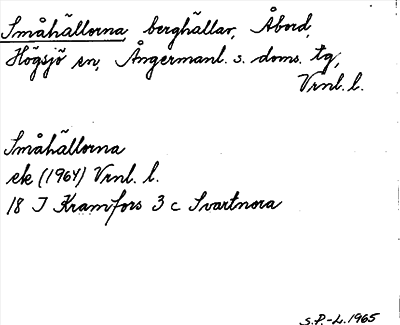 Småhällorna, berghällar, Åbord,
Högsjö sn, Ångermanl. s. doms. tg,
Vrnl. l.
Småhällorna
ek (1964) Vrnl. l.
18 J Kramfors 3 c Svartnora
S.P.-L. 1965